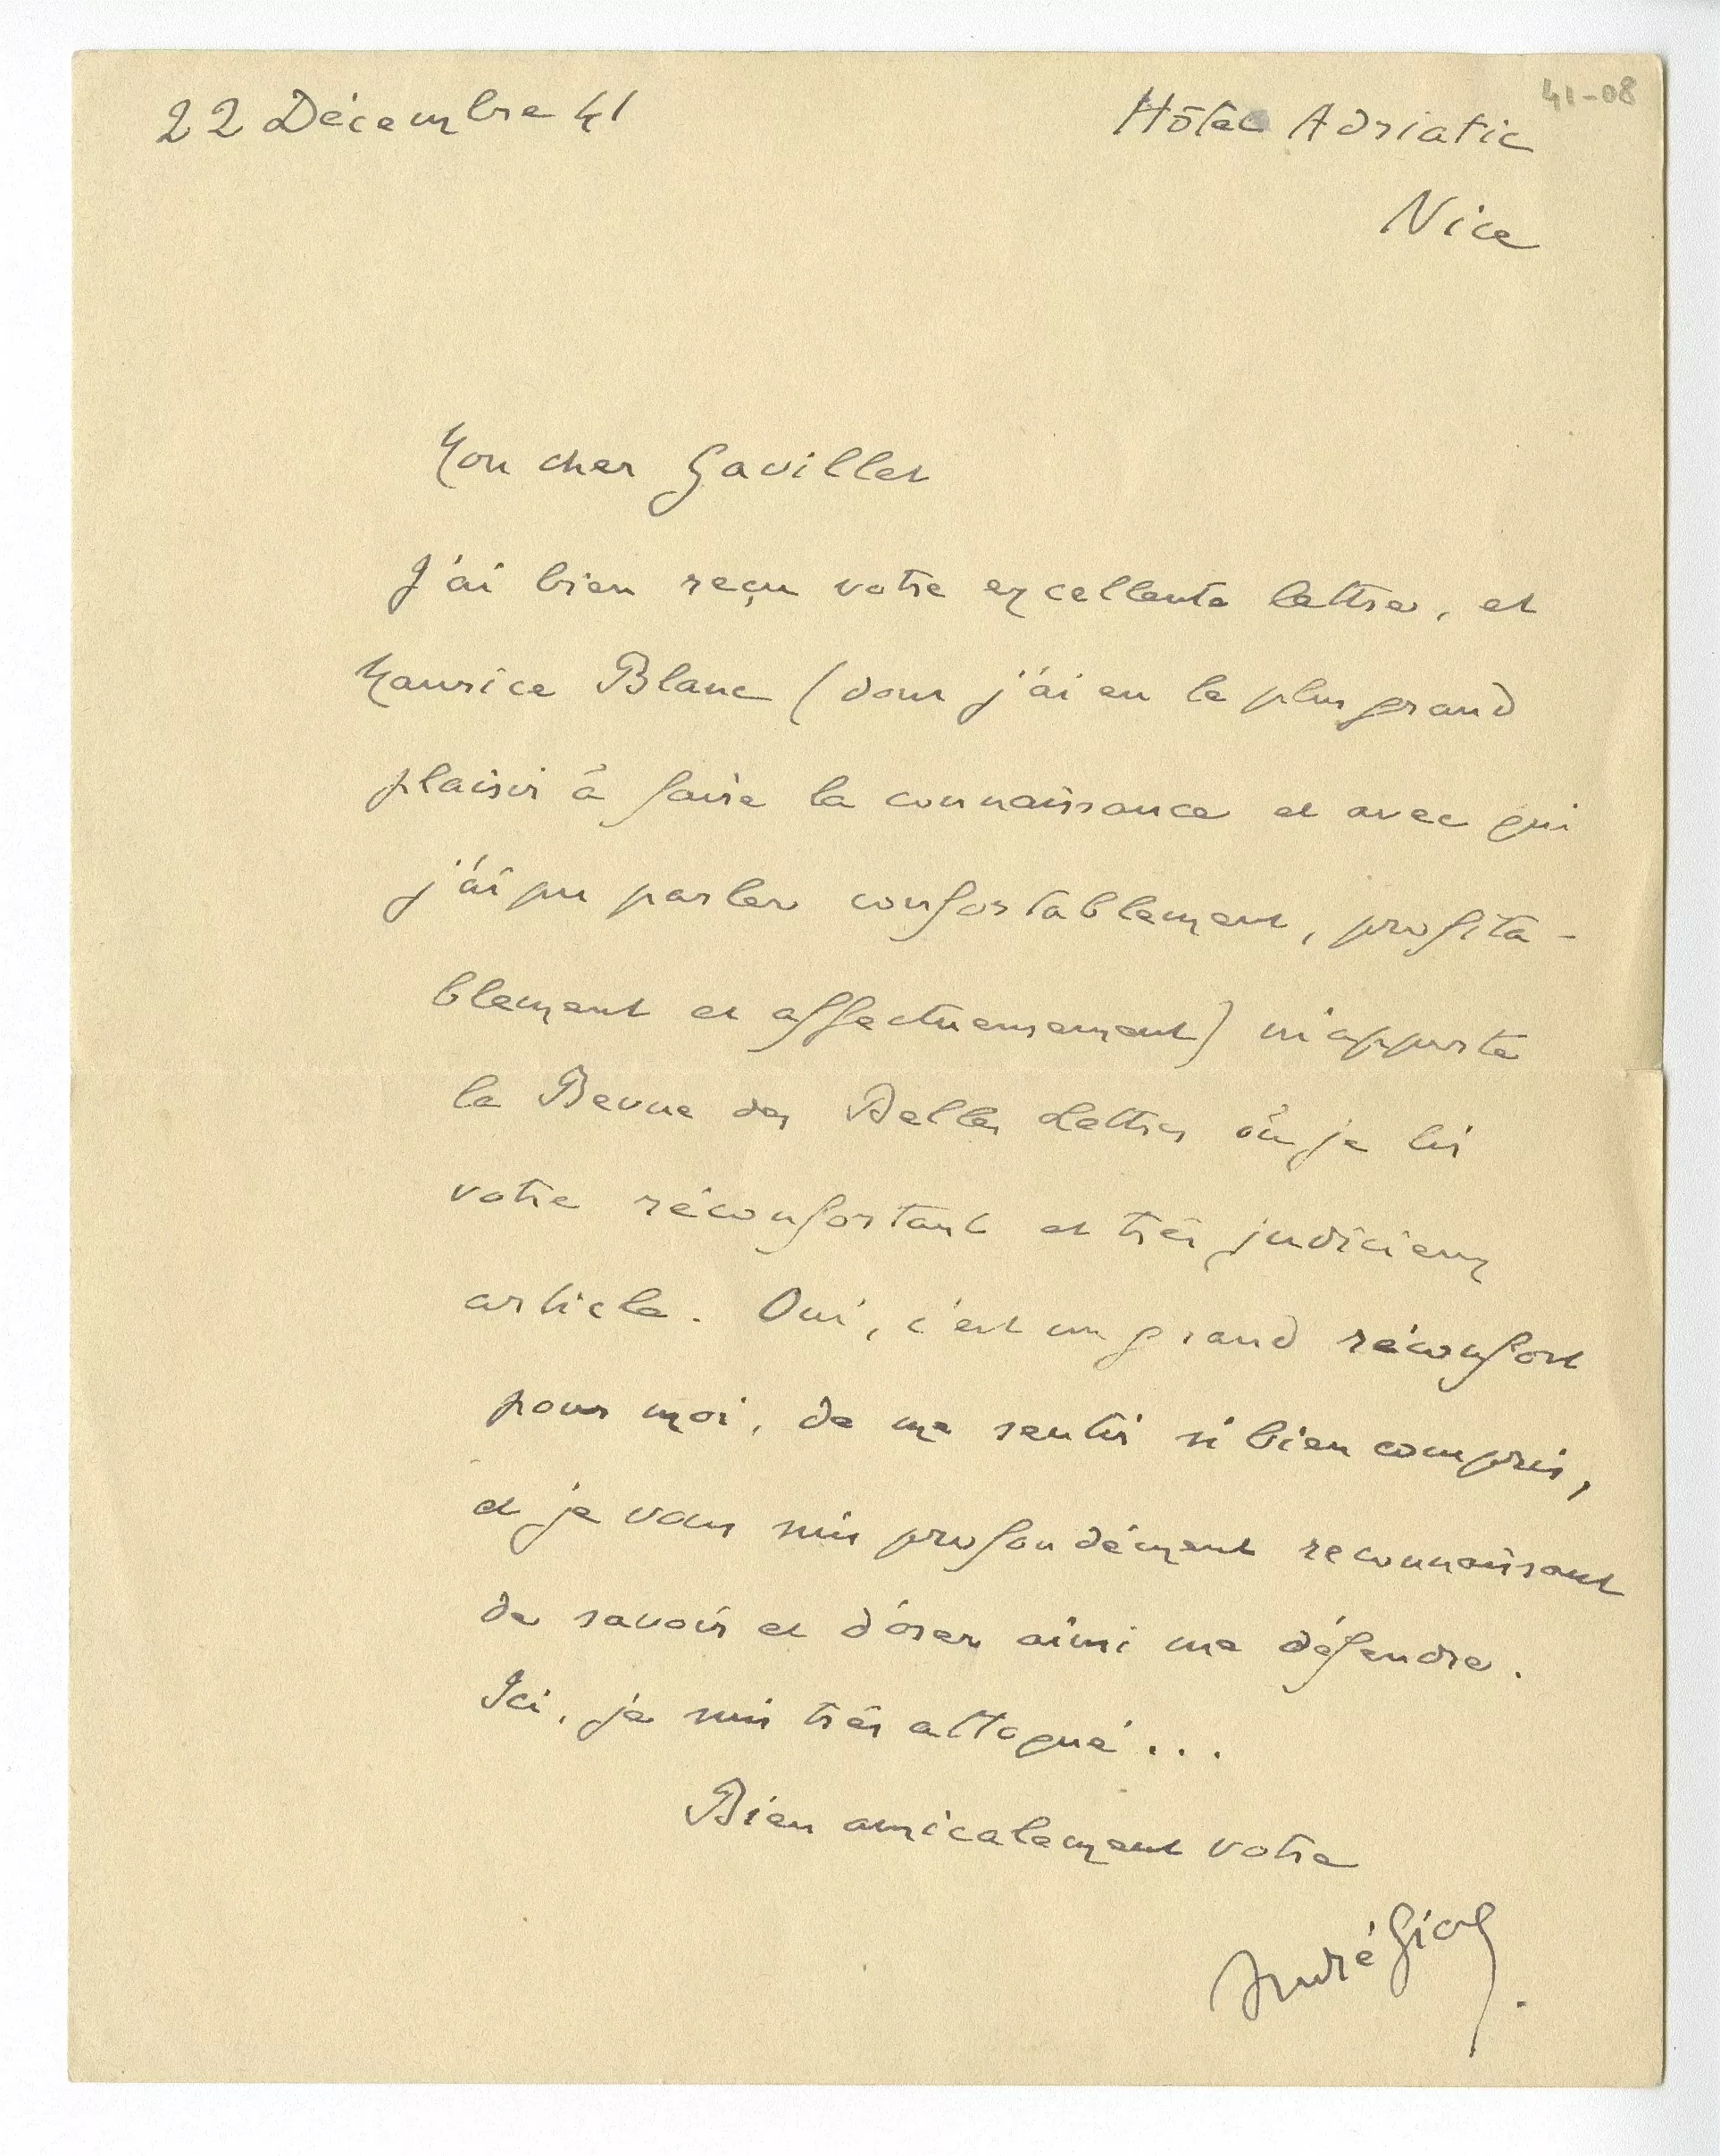 41-08
22 Décembre 41
Hôtel Adriatic
Nice
Mon cher Gavillet
J'ai bien reçu votre excellente lettre, et
Maurice Blanc (dont j'ai eu le plus grand
plaisir à faire la connaissance et avec qui
j'ai pu parler confortablement, profita-
blement et affectueusement) m'apporte
la Revue des Belles Lettres où je lis
votre réconfortant et très judicieux
article. Oui, c'est un grand réconfort
pour moi, de me sentir si bien compris,
et je vous suis profondément reconnaissant
de savoir et d'oser ainsi me défendre.
Ici, je suis très attaqué...
Bien amicalement votre
André Gide.